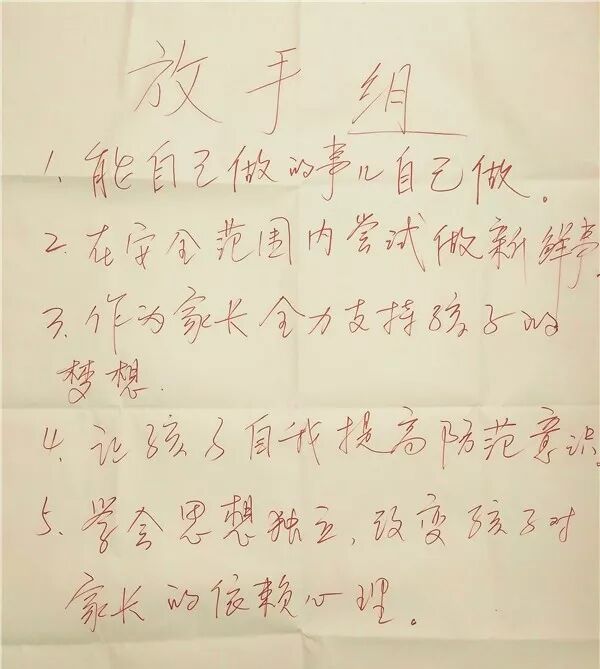 放手组
1. 能自己做的事儿自己做。
2. 在安全范围内尝试做新鲜事
3. 作为家长全力支持孩子的
梦想.
4. 让孩子自我提高防范意识。
5. 学会思想独立，改变孩子对
家长的依赖心理。